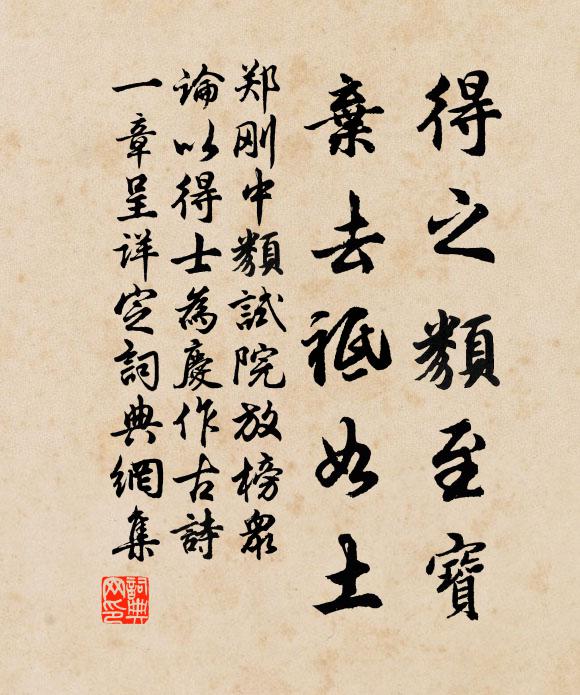 得之類至寶
棄去祗如土
郑刚中類試院放榜眾
論以得士為慶作古詩
一章呈详定詞典網集
詞典网印